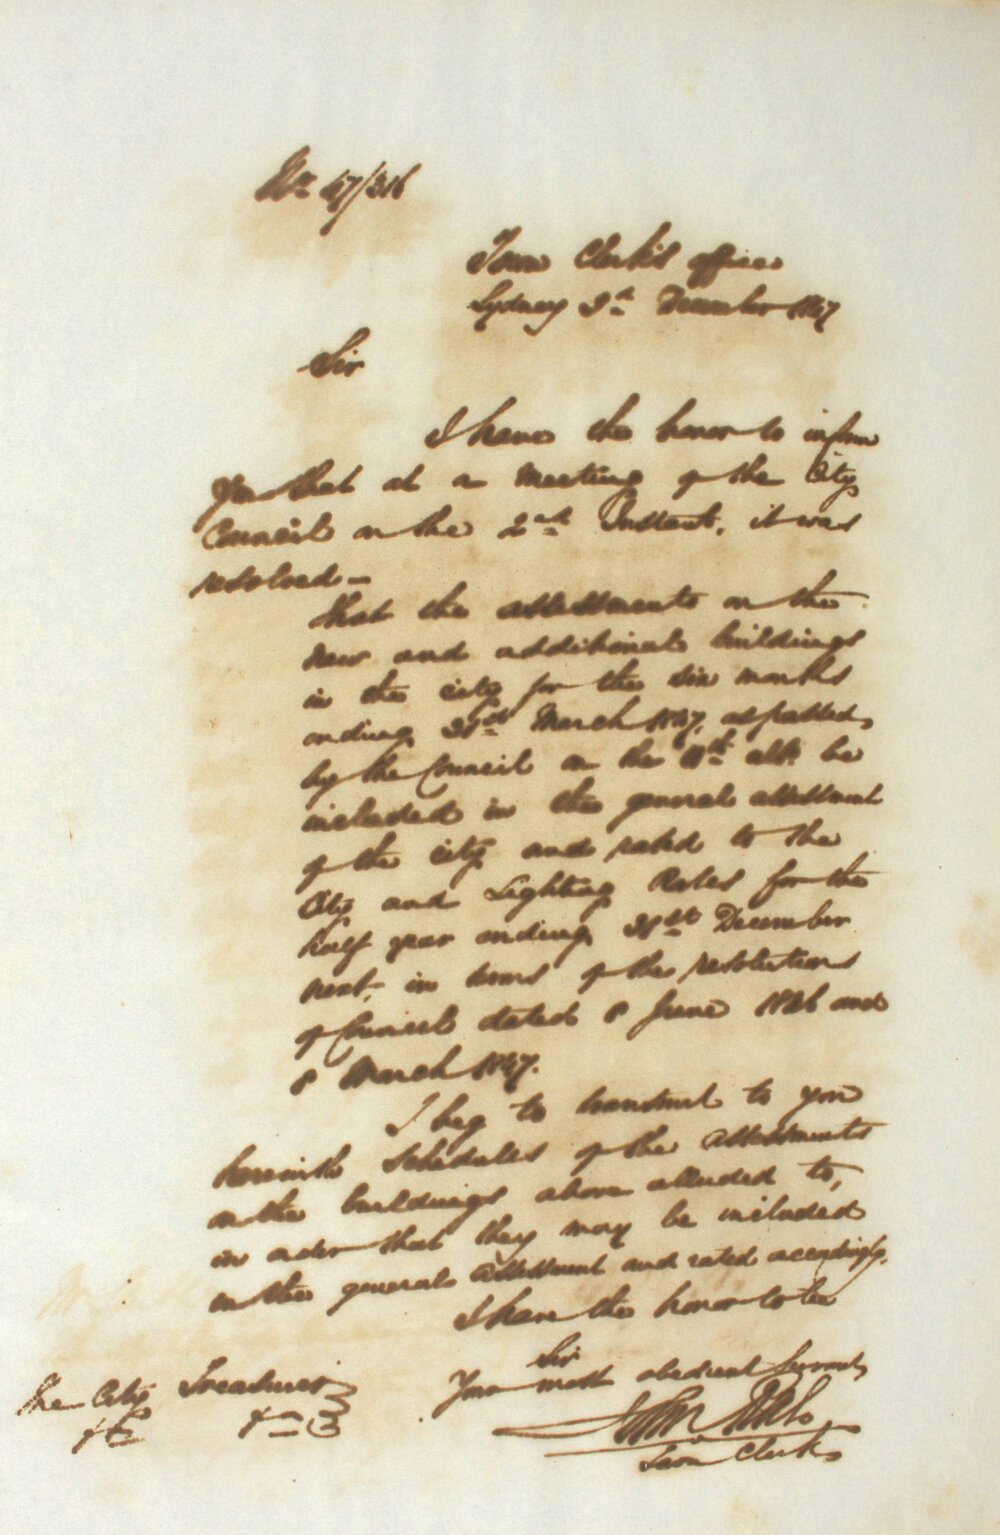 No 47/316
Town Clerk's Office
Sydney 3d December 1847
Sir
I have the honor to inform
you that at a Meeting of the City
Council on the 2nd Instant, it was
resolved —
that the assessments on the
new and additional buildings
in the city for the six months
ending 31st March 1847, as passed
by the Council on the 11th ulto. be
included in the general assessment
of the city and rated to the
City and Lighting Rates for the
half year ending 31st December
next, in terms of the resolutions
of Council dated 8 June 1846 and
8 March 1847.
I beg to transmit to you
herewith Schedules of the Assessments
on the buildings above alluded to,
in order that they may be included
in the general Assessment and rated accordingly.
I have the honor to be
Sir
Your most obedient Servant
John
Town Clerk
The City Treasurer
&c &c